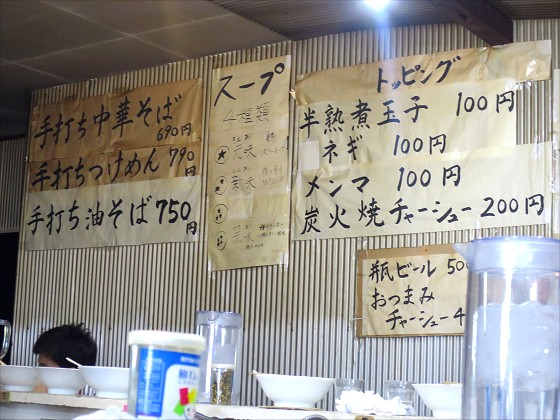 手打ち中華そば
690円
手打ちつけめん 790円
手打ち油そば 750円
スープ
4種類
元味
トッピング
半熟煮玉子 100円
ネギ 100円
メンマ 100円
炭火焼チャーシュー 200円
瓶ビール 500
おつまみ
チャーシュー 4